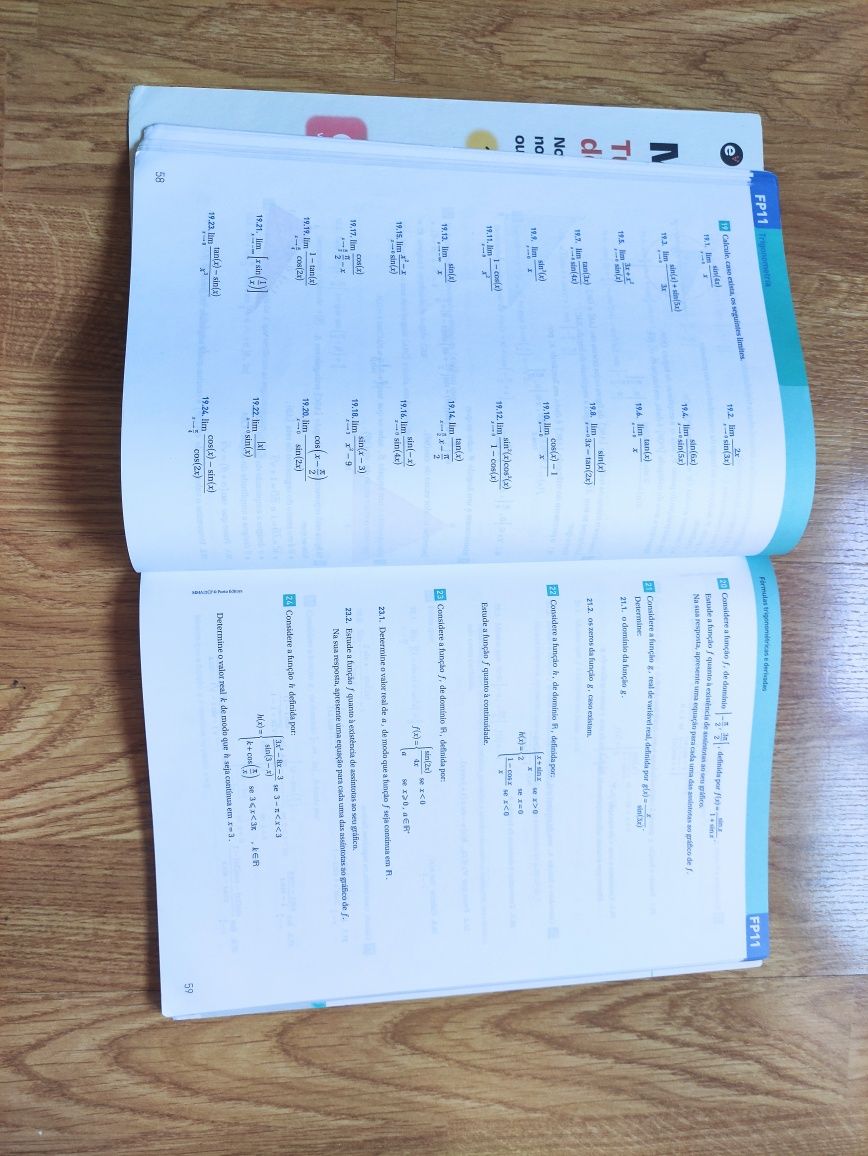 FP11 Trigonometria
19 Calcule, caso exista, os seguintes limites.
19.1. lim x→0 sin(4x)/x
19.2. lim x→0 2x/sin(3x)
19.3. lim x→0 (sin(x) + sin(5x))/3x
19.4. lim x→0 sin(6x)/sin(5x)
19.5. lim x→0 (3x + x²)/sin(x)
19.6. lim x→0 tan(x)/x
19.7. lim x→0 tan(3x)/sin(4x)
19.8. lim x→0 sin(x)/(3x − tan(2x))
19.9. lim x→0 sin²(x)/x
19.10. lim x→0 (cos(x) − 1)/x
19.11. lim x→0 (1 − cos(x))/x²
19.12. lim x→0 sin²(x)cos²(x)/(1 − cos(x))
19.13. lim sin(x)/x
19.14. lim x→π/2 tan(x)/(x − π/2)
19.15. lim x→0 (x² − x)/sin(x)
19.16. lim x→0 sin(−x)/sin(4x)
19.17. lim x→π/2 cos(x)/(π/2 − x)
19.18. lim x→3 sin(x − 3)/(x² − 9)
19.19. lim x→π/4 (1 − tan(x))/cos(2x)
19.20. lim x→0 cos(x − π/2)/sin(2x)
19.21. lim [x sin(1/x)]
19.22. lim x→0 |x|/sin(x)
19.23. lim x→0 (tan(x) − sin(x))/x³
19.24. lim x→π/4 (cos(x) − sin(x))/cos(2x)
58
Fórmulas trigonométricas e derivadas FP11
20 Considere a função f, de domínio ]−π/2, 3π/2[, definida por f(x) = sin x/(1 + sin x).
Estude a função f quanto à existência de assíntotas ao seu gráfico.
Na sua resposta, apresente uma equação para cada uma das assíntotas ao gráfico de f.
21 Considere a função g, real de variável real, definida por g(x) = x/sin(3x).
Determine:
21.1. o domínio da função g.
21.2. os zeros da função g, caso existam.
22 Considere a função h, de domínio ℝ, definida por:
h(x) = { (x + sin x)/x se x > 0
2 se x = 0
(1 − cos x)/x se x < 0
Estude a função f quanto à continuidade.
23 Considere a função f, de domínio ℝ, definida por:
f(x) = { sin(2x)/4x se x < 0
a se x ⩾ 0, a ∈ ℝ⁺
23.1. Determine o valor real de a, de modo que a função f seja contínua em ℝ.
23.2. Estude a função f quanto à existência de assíntotas ao seu gráfico.
Na sua resposta, apresente uma equação para cada uma das assíntotas ao gráfico de f.
24 Considere a função h definida por:
h(x) = { (3x² − 8x − 3)/sin(3 − x) se 3 − π < x < 3
k + cos(π/x) se 3 ⩽ x < 3π , k ∈ ℝ
Determine o valor real k de modo que h seja contínua em x = 3.
© Porto Editora
59